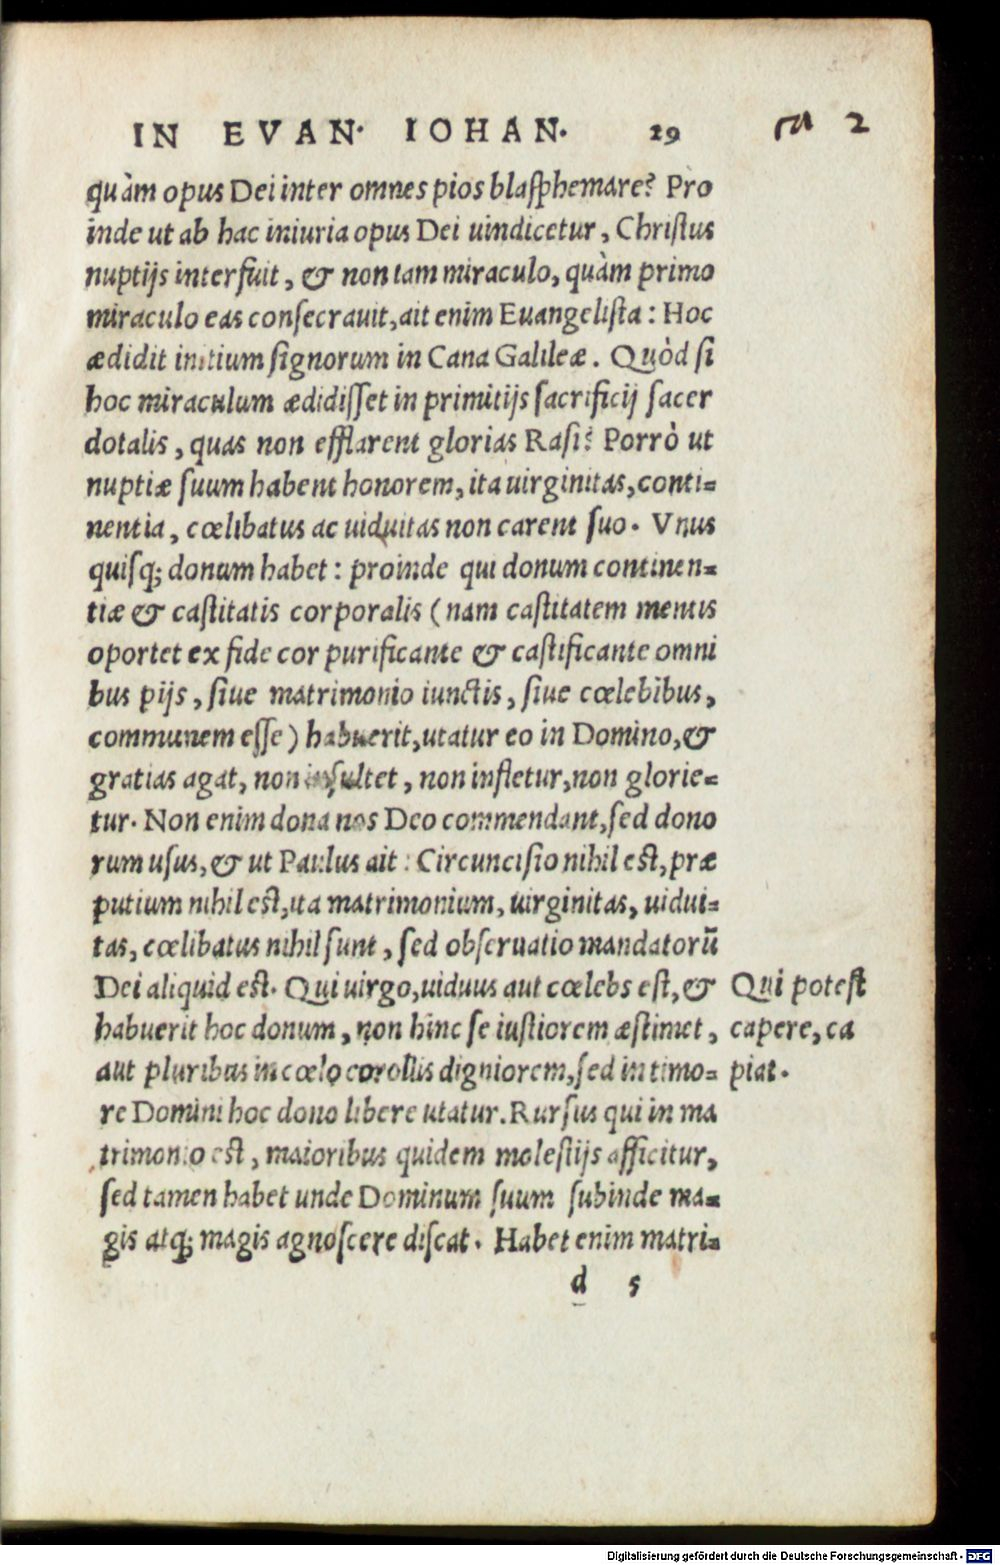 IN EVAN. IOHAN. 29 ca 2
quàm opus Dei inter omnes pios blasphemare? Pro
inde ut ab hac iniuria opus Dei uindicetur, Christus
nuptijs interfuit, & non tam miraculo, quàm primo
miraculo eas consecrauit, ait enim Euangelista: Hoc
ædidit initium signorum in Cana Galileæ. Quòd si
hoc miraculum ædidisset in primitijs sacrificij sacer
dotalis, quas non efflarent glorias Rasi? Porrò ut
nuptiæ suum habent honorem, ita uirginitas, conti-
nentia, cœlibatus ac uiduitas non carent suo. Vnus
quisq; donum habet: proinde qui donum continen-
tiæ & castitatis corporalis (nam castitatem mentis
oportet ex fide cor purificante & castificante omni
bus pijs, siue matrimonio iunctis, siue cœlebibus,
communem esse) habuerit, utatur eo in Domino, &
gratias agat, non insultet, non infletur, non glorie-
tur. Non enim dona nos Deo commendant, sed dono
rum usus, & ut Paulus ait: Circuncisio nihil est, præ
putium nihil est, ita matrimonium, uirginitas, uidui-
tas, cœlibatus nihil sunt, sed obseruatio mandatorũ
Dei aliquid est. Qui uirgo, uiduus aut cœlebs est, &
habuerit hoc donum, non hinc se iustiorem æstimet,
aut pluribus in cœlo corollis digniorem, sed in timo-
re Domini hoc dono libere utatur. Rursus qui in ma
trimonio est, maioribus quidem molestijs afficitur,
sed tamen habet unde Dominum suum subinde ma-
gis atq; magis agnoscere discat. Habet enim matri-
d 5
Qui potest
capere, ca
piat.
Digitalisierung gefördert durch die Deutsche Forschungsgemeinschaft - DFG